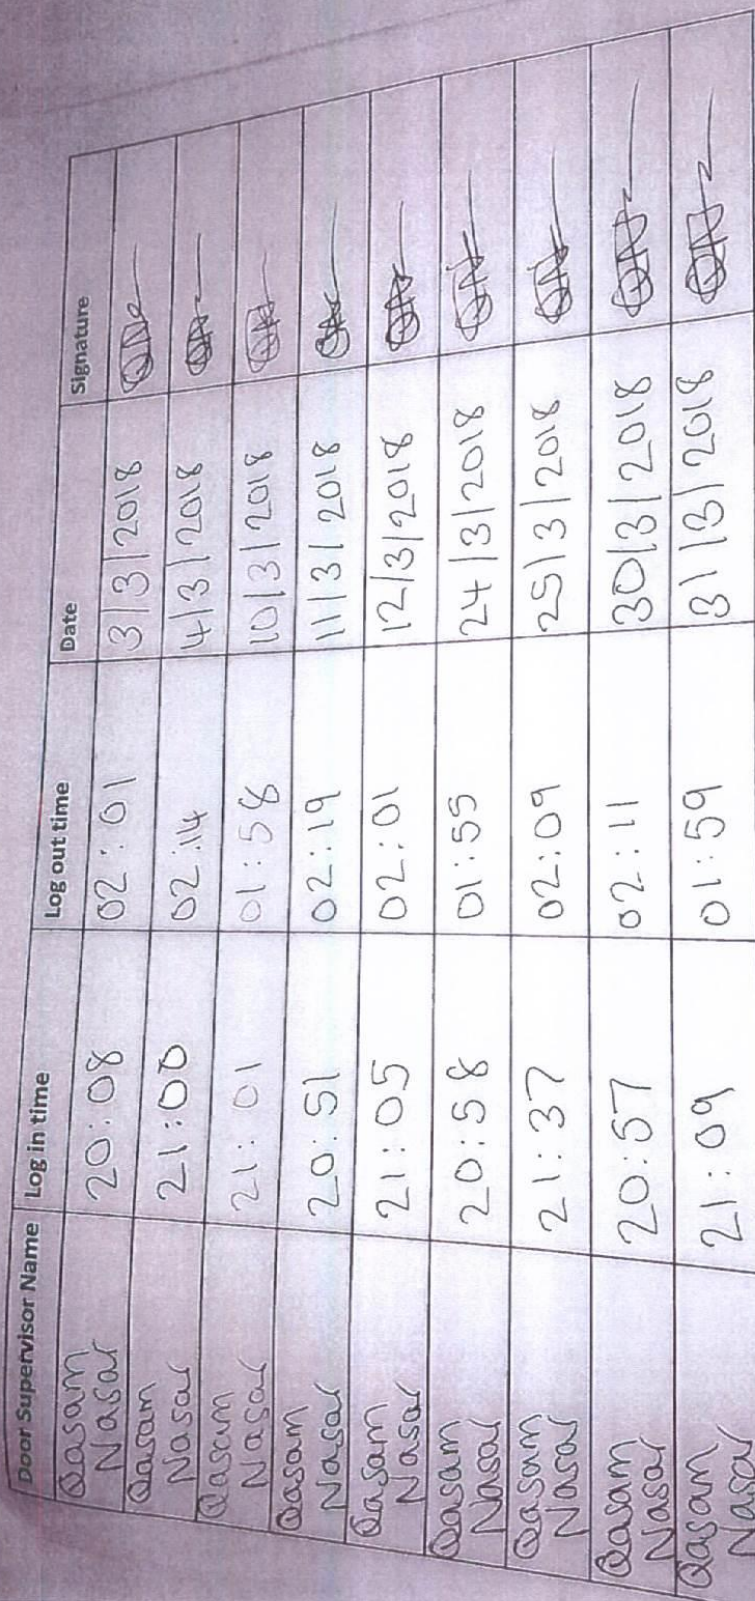 Door Supervisor Name Log in time Log out time Date Signature
Qasam Nasar 20:08 02:01 3/3/2018
Qasam Nasar 21:00 02:14 4/3/2018
Qasam Nasar 21:01 01:58 10/3/2018
Qasam Nasar 20:51 02:19 11/3/2018
Qasam Nasar 21:05 02:01 12/3/2018
Qasam Nasar 20:58 01:55 24/3/2018
Qasam Nasar 21:37 02:09 25/3/2018
Qasam Nasar 20:57 02:11 30/3/2018
Qasam Nasar 21:09 01:59 31/3/2018